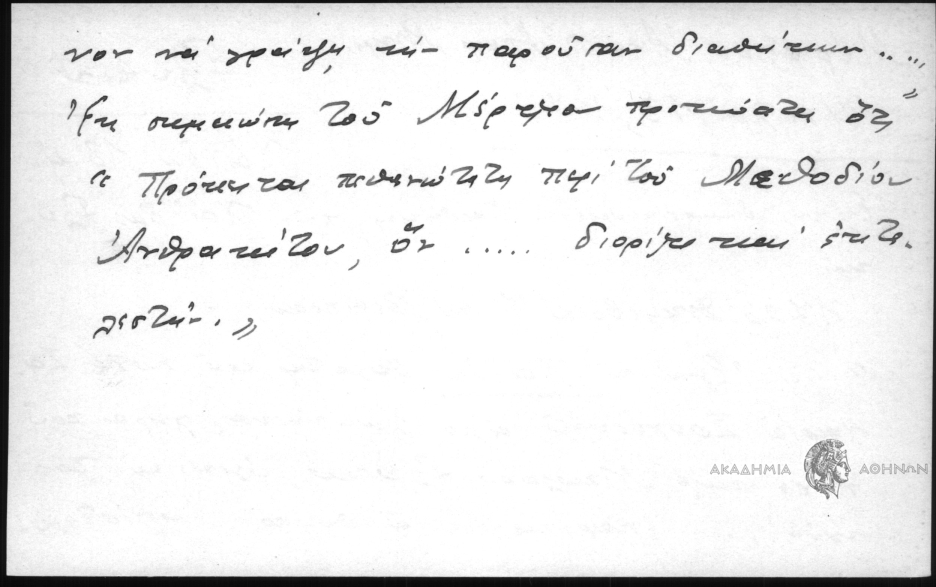 νον νὰ γράψῃ τὴν παροῦσαν διαθήκην .....»
Ἐκ σημειώσης τοῦ Μέρτζιου προκύπτει ὅτι
« Πρόκειται πιθανώτατα περὶ τοῦ Μεθοδίου
Ἀνθρακίτου, ὃν ..... διορίζει καὶ ἐκτε-
λεστήν. »
ΑΚΑΔΗΜΙΑ ΑΘΗΝΩΝ